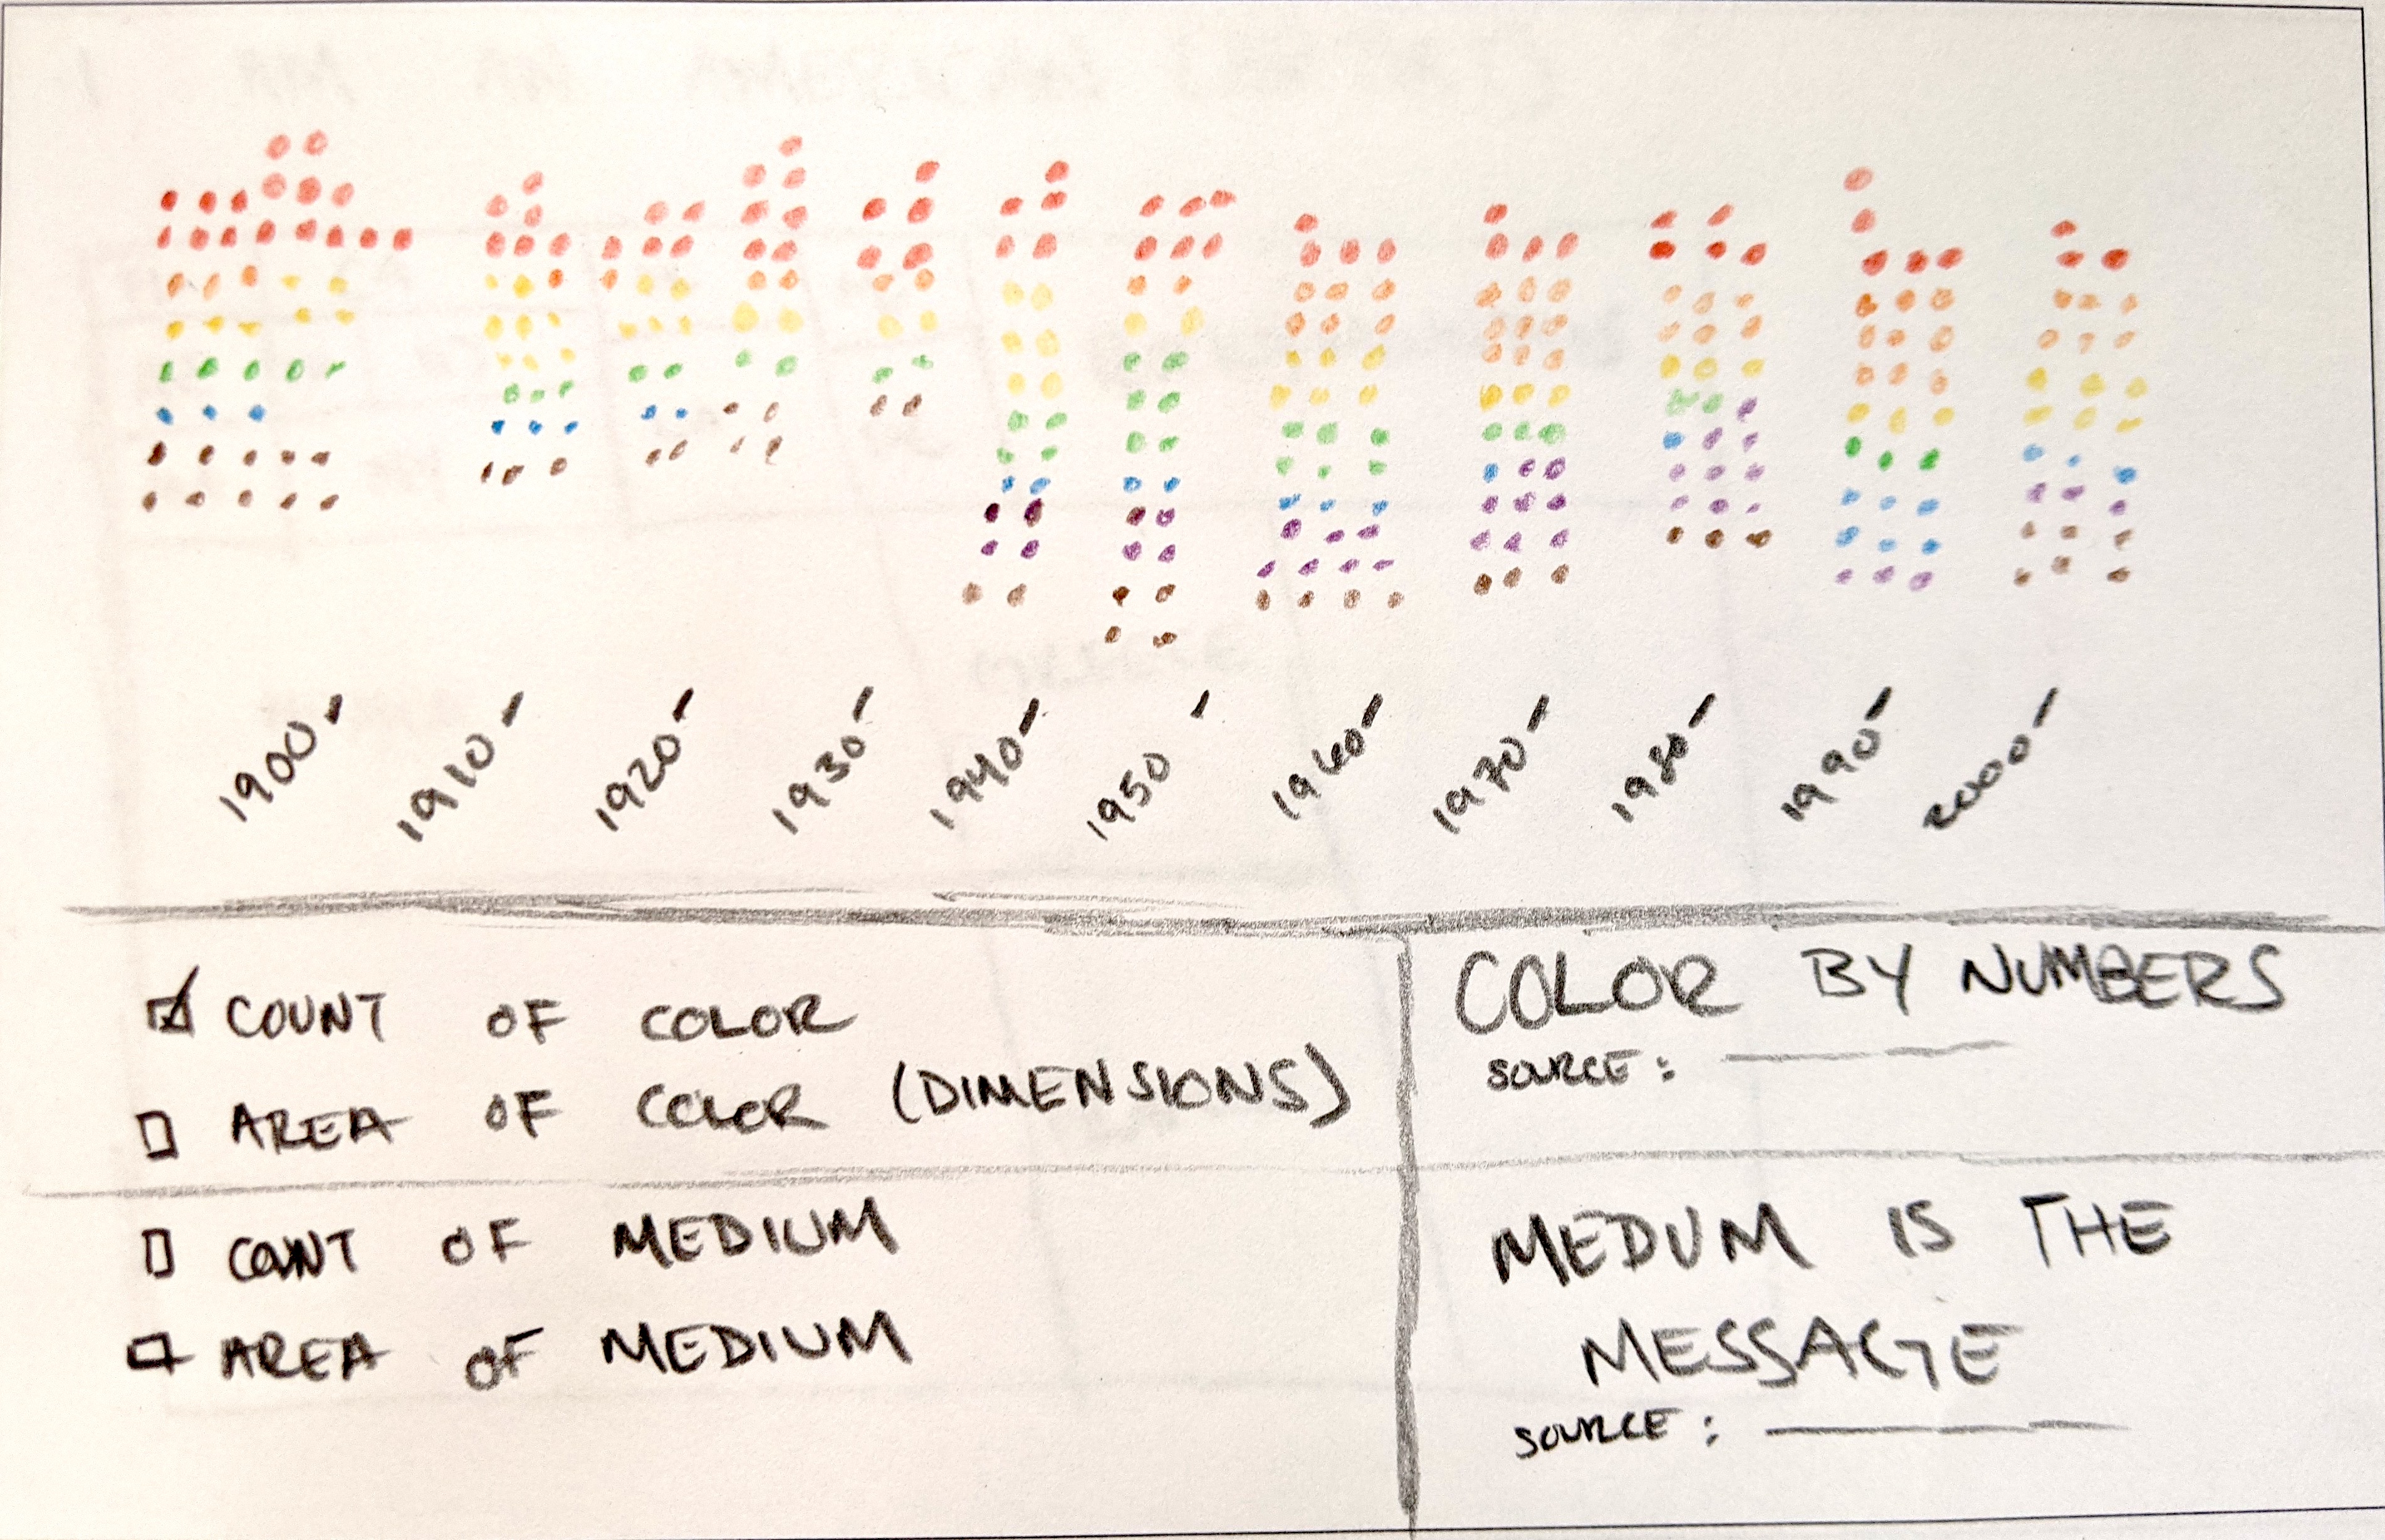 1900-
1910-
1920-
1930-
1940-
1950-
1960-
1970-
1980-
1990-
2000-
COUNT OF COLOR
AREA OF COLOR (DIMENSIONS)
COUNT OF MEDIUM
AREA OF MEDIUM
COLOR BY NUMBERS
SOURCE:
MEDUM IS THE
MESSAGE
SOURCE: